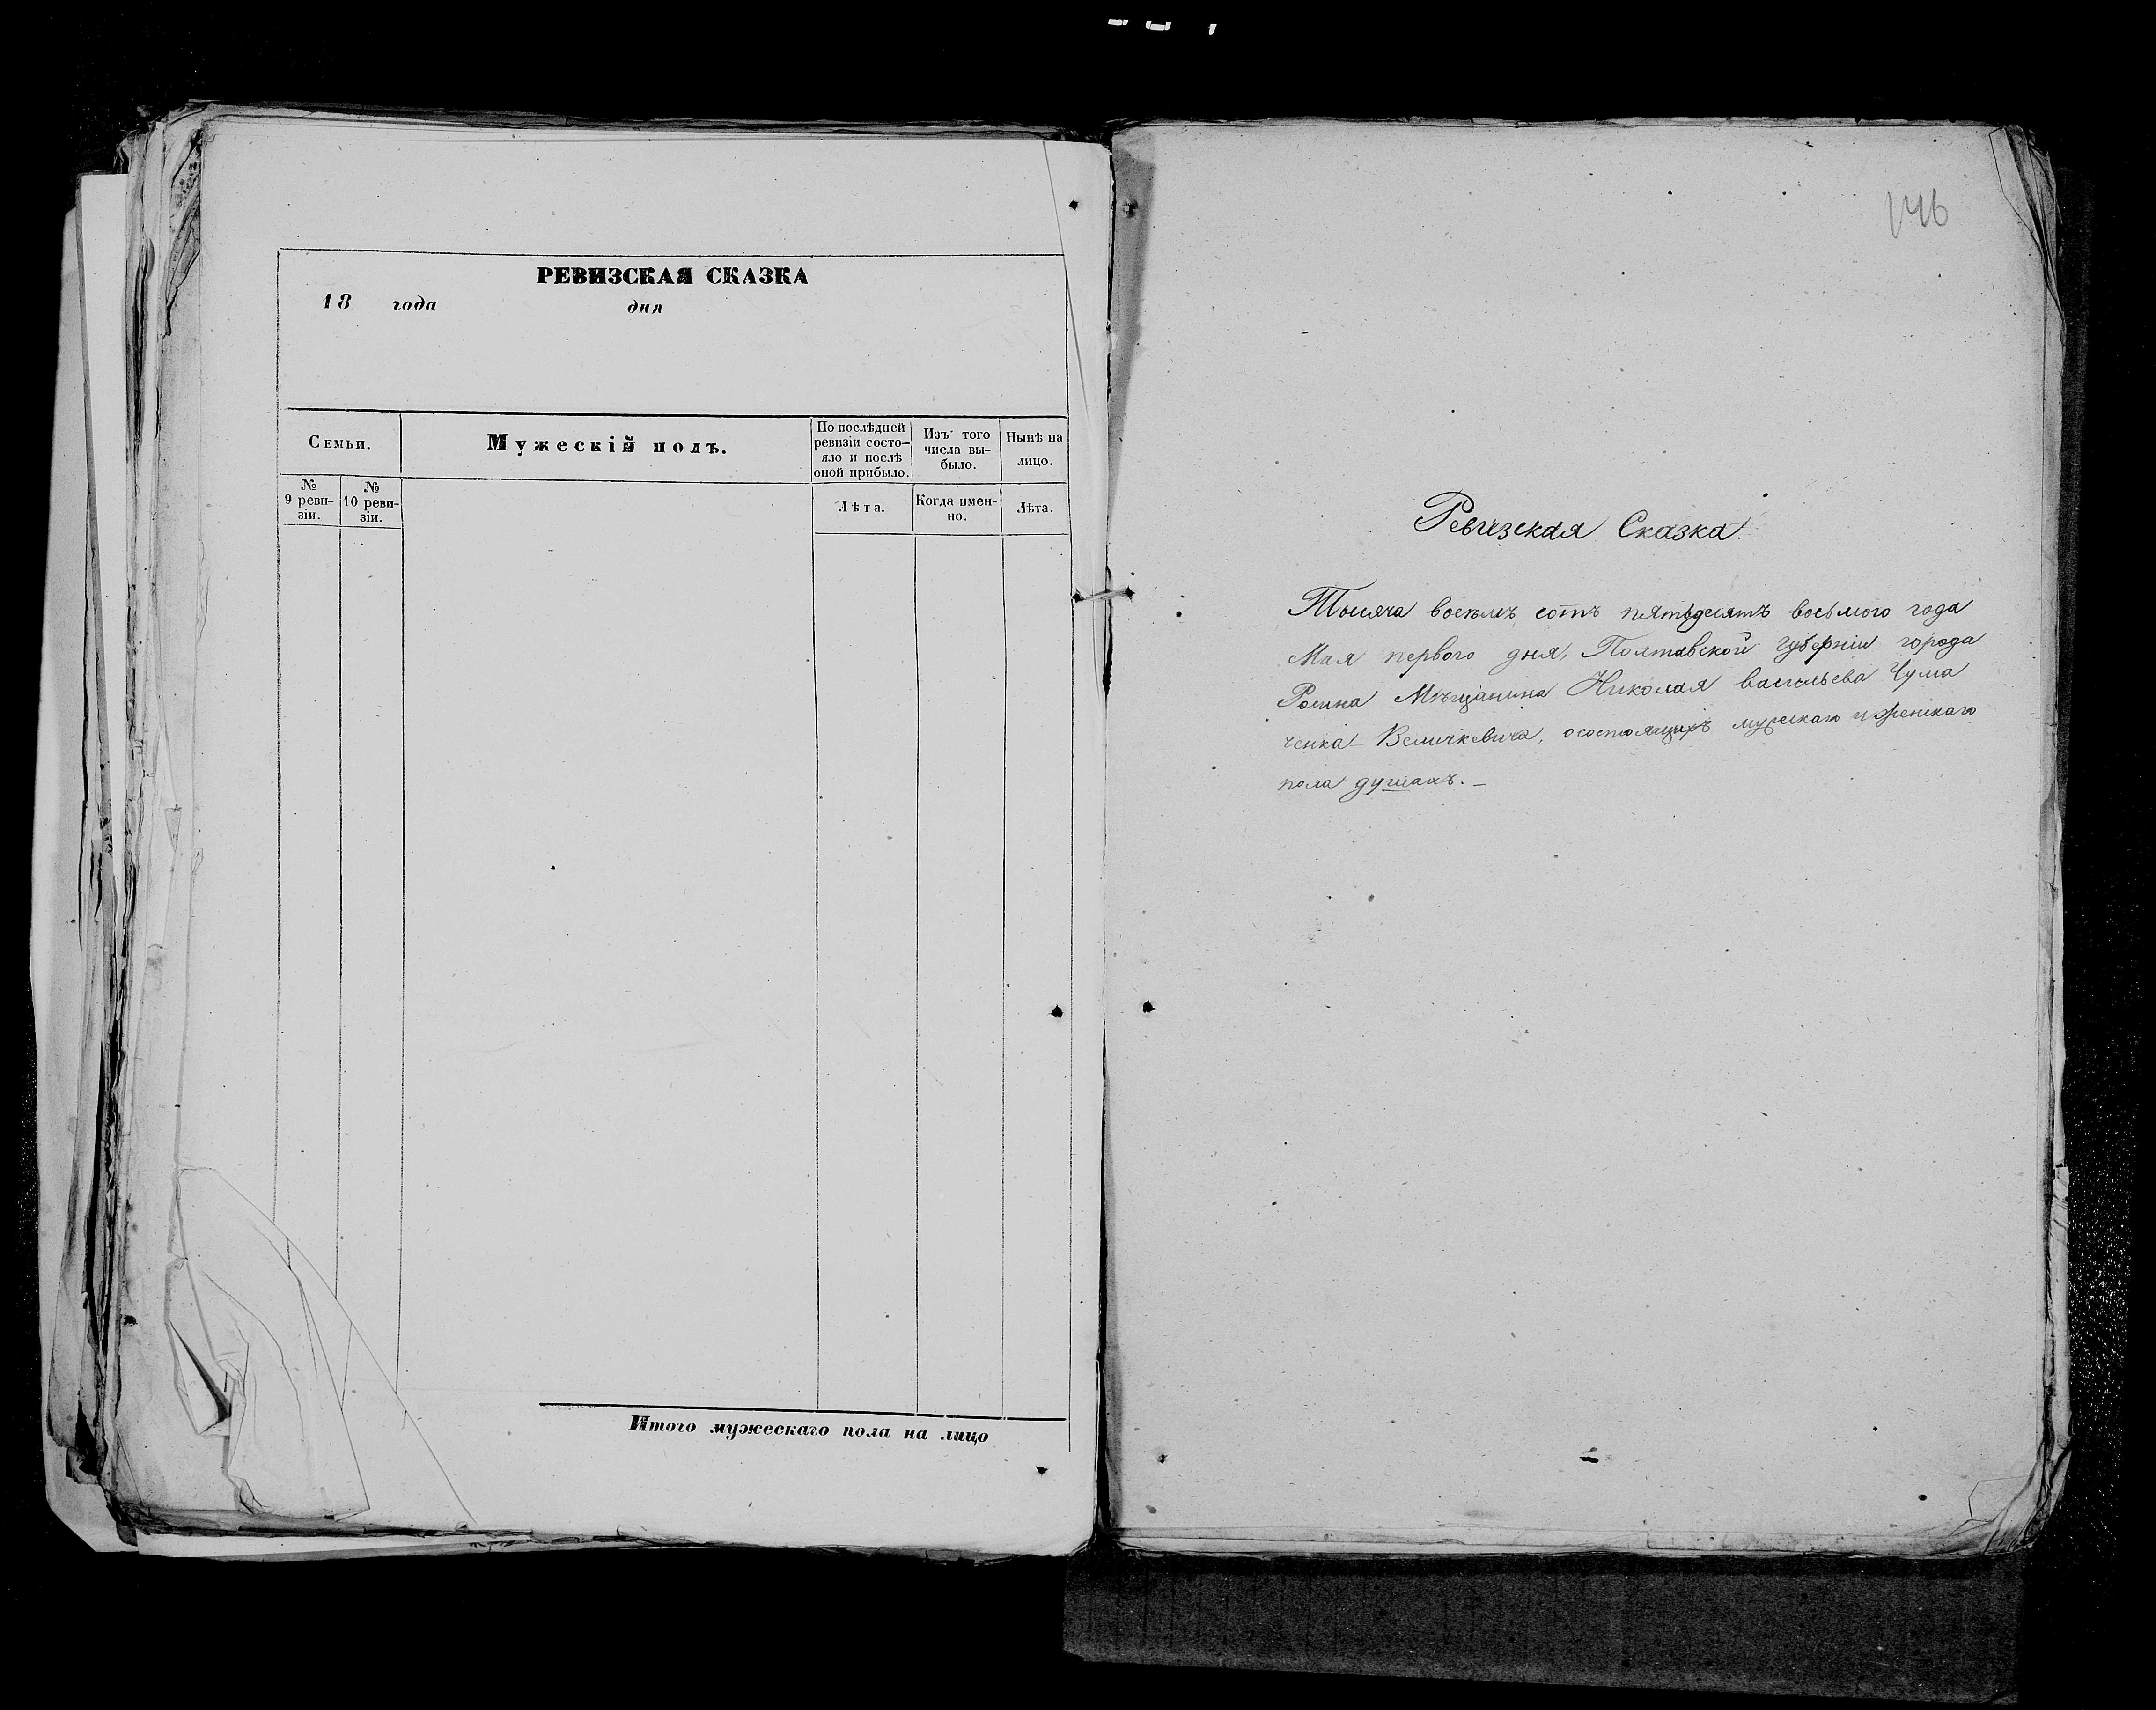 РЕВИЗСКАЯ СКАЗКА
18 года дня
Семьи.
Мужескій полъ.
По послѣдней
ревизіи состо-
яло и послѣ
оной прибыло.
Изъ того
числа вы-
было.
Нынѣ на
лицо.
№
9 реви-
зіи.
№
10 реви-
зіи.
Лѣта.
Когда имен-
но.
Лѣта.
Итого мужескаго пола на лицо
146
Ревизская Сказка.
Тысяча восемь сотъ пятьдесятъ восьмого года
Мая первого дня, Полтавской губерніи города
Мѣщанина Николая Васильева Чума
ченка-Величкевича, осостоящихъ мужскаго и женскаго
пола душахъ. —